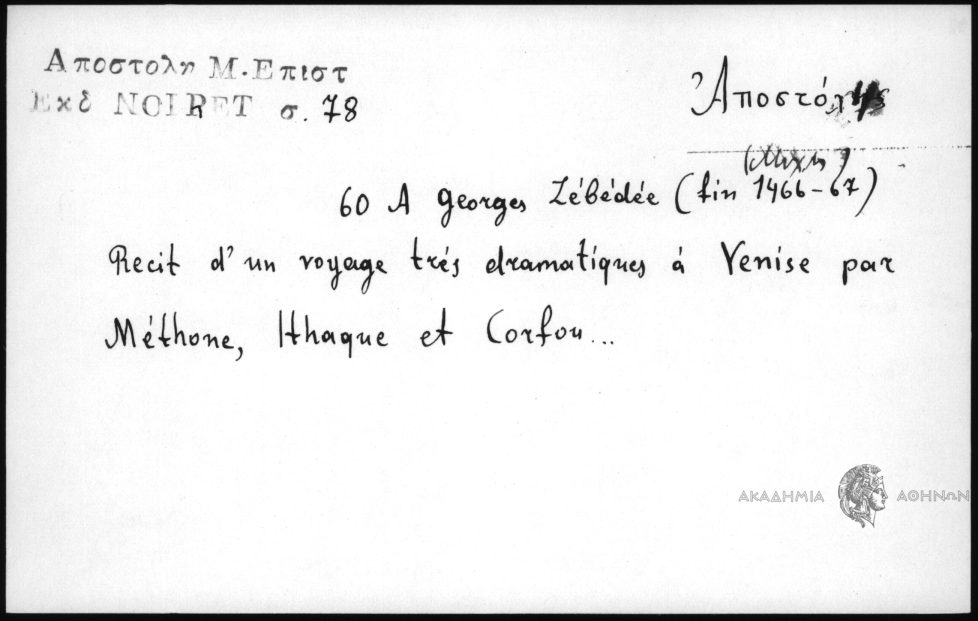 Αποστολη Μ. Επιστ
Εκδ NOIRET σ. 78
Ἀποστόλης
60 A Georges Zébédée (fin 1466-67)
Recit d'un voyage trés dramatiques à Venise par
Méthone, Ithaque et Corfou...
ΑΚΑΔΗΜΙΑ ΑΘΗΝΩΝ